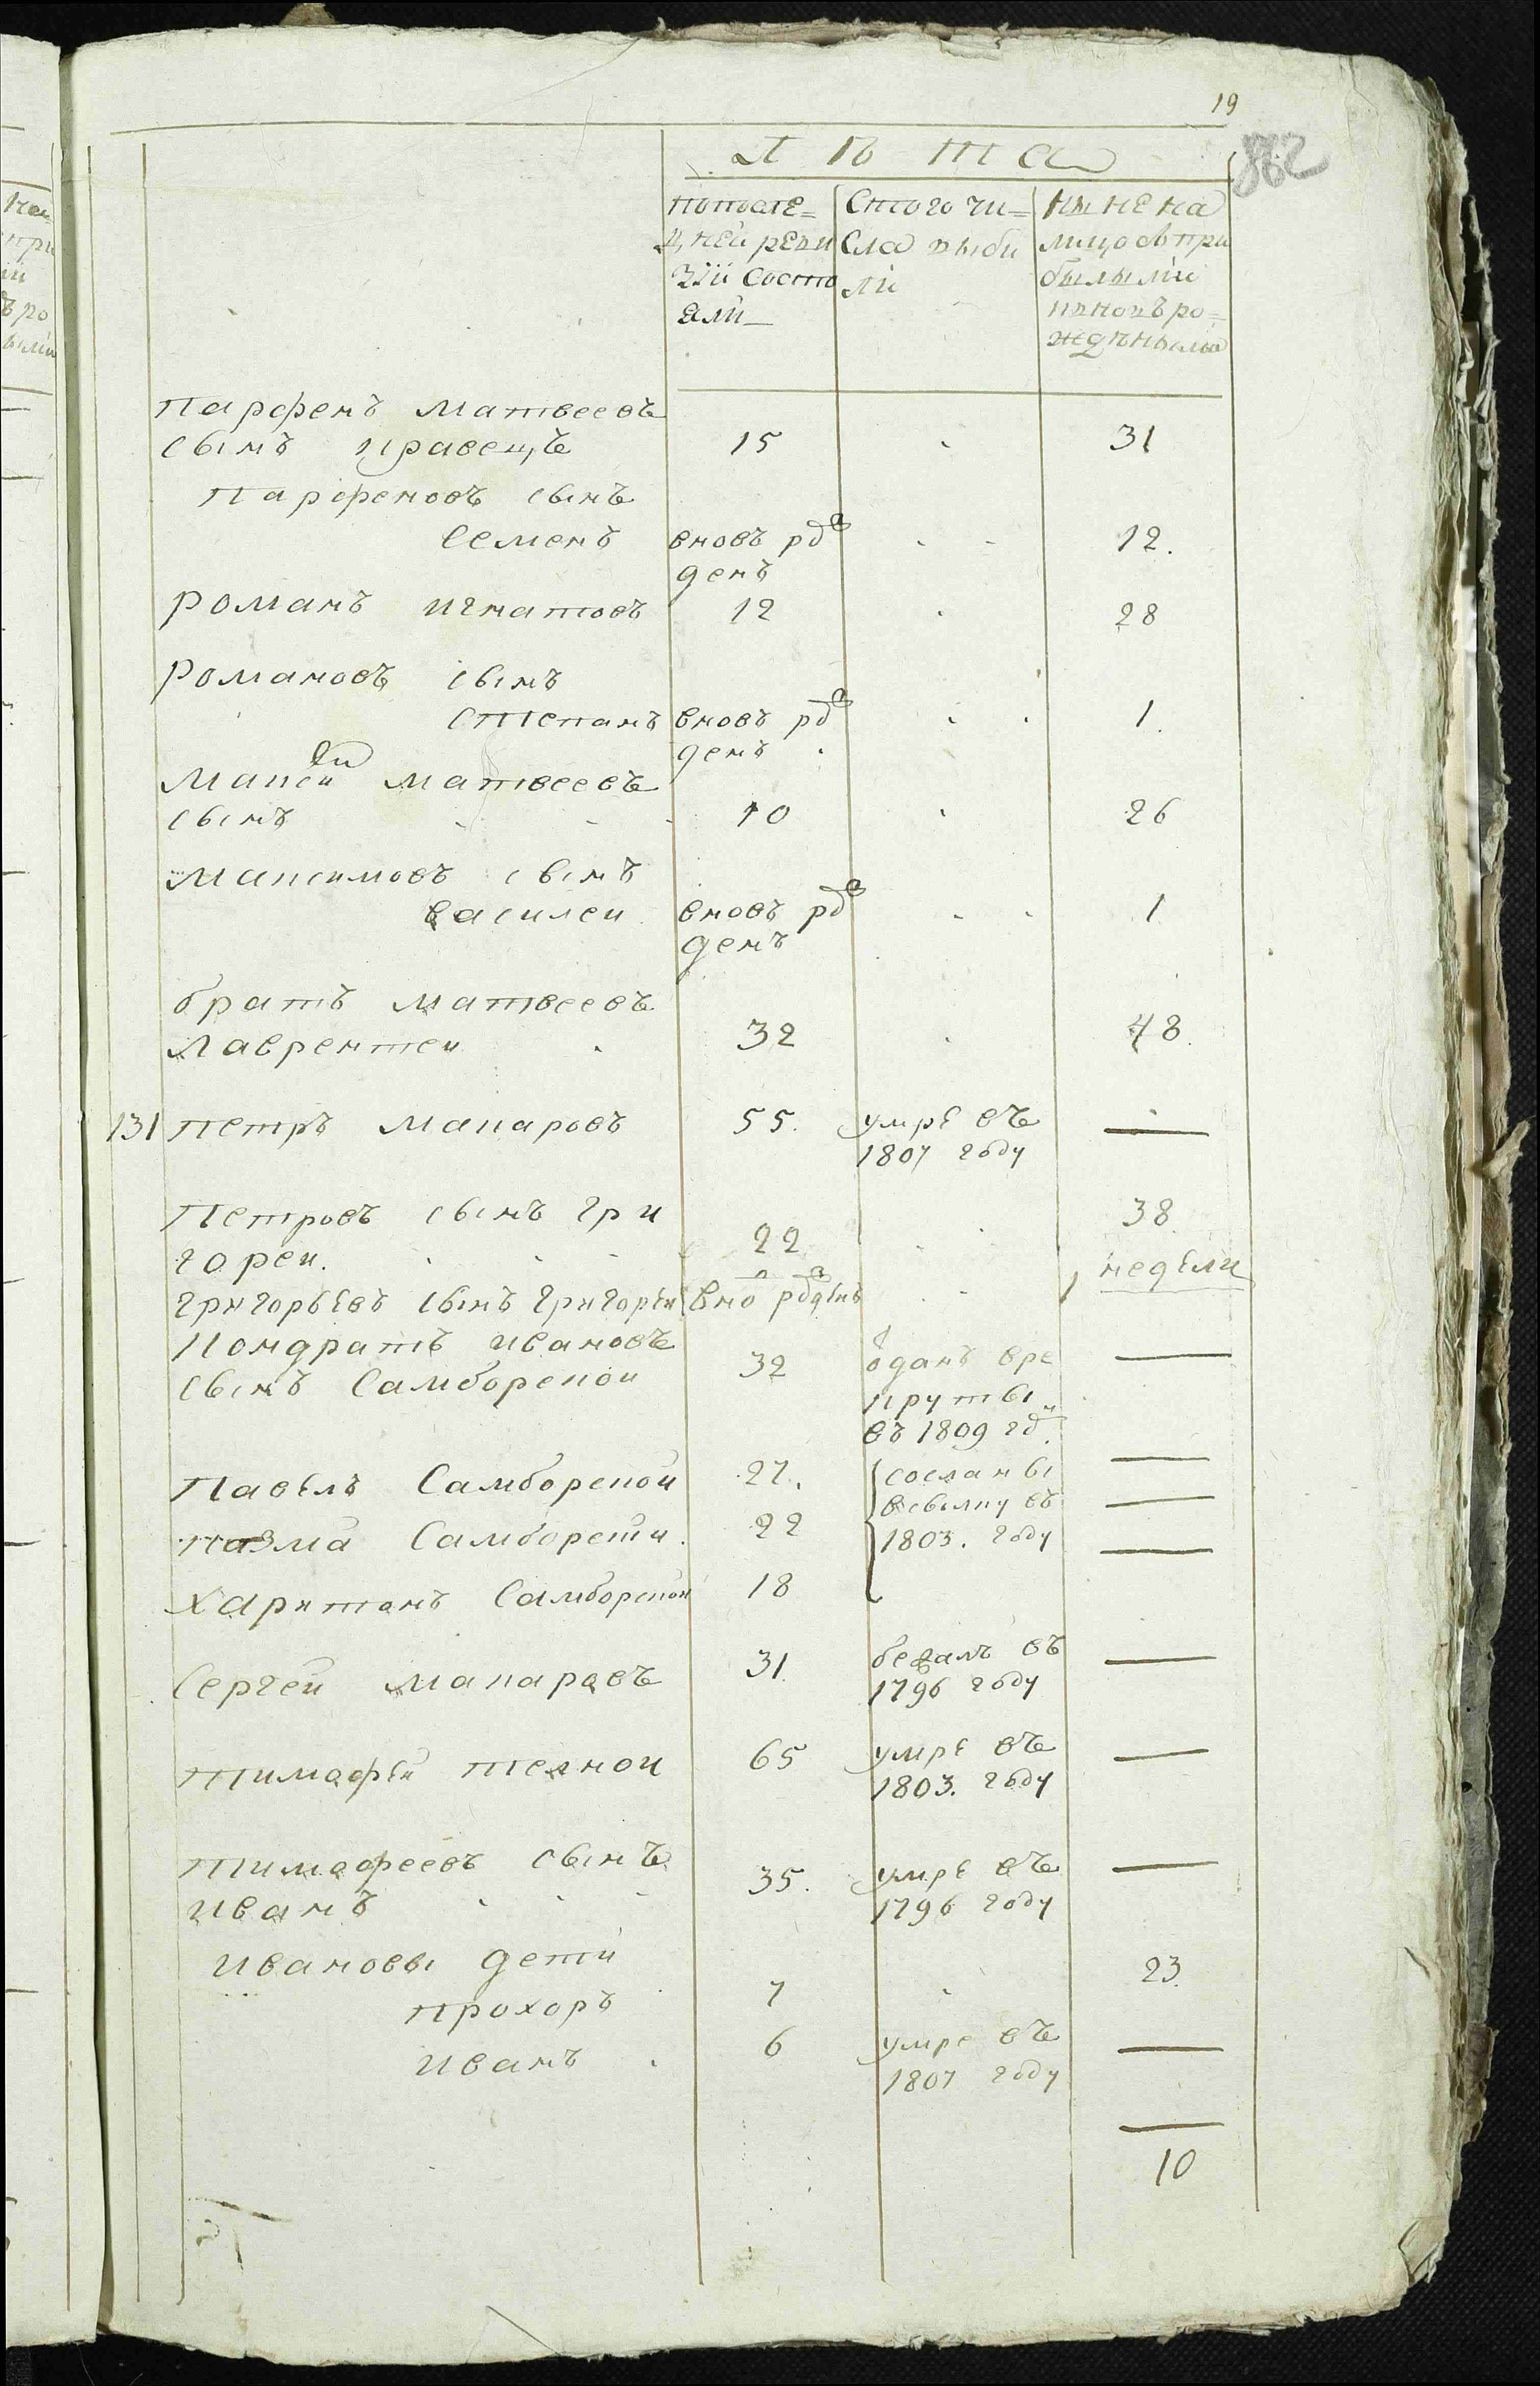 19
862
Лѣта
Потосле=
дней реви
зiи состо
яли
Сътого чи=
сла выбы
ли
Ныне на
лицо съ при
былыми
и вновъ ро=
жденными
Парфенъ Матвеевъ
сынъ кравецъ 15 31
Парфеновъ сынъ
Семенъ вновъ рда 12.
денъ
Романъ Игнатовъ 12 28
Романовъ сынъ
Степанъ вновъ рда 1.
денъ
Матвеевъ
сынъ 10 26
Максимовъ сынъ
Василеи вновъ рда 1
денъ
братъ Матвеевъ
Лаврентеи 32 48.
131 Петръ Макаровъ 55. умре въ —
1807 году
Петровъ сынъ Гри
гореи. 22 38.
Григорьевъ сынъ Григореи вно рдаденъ 1 недели
Кондратъ Ивановъ
сынъ Самборскои 32 оданъ вре —
круты
въ 1809 гду
Павелъ Самборскои 27. сосланы —
всылку въ
Козма Самборски 22 1803. году —
Харитонъ Самборскои 18 —
Сергеи Макаровъ 31. бежалъ въ —
1796 году
Тимофеи Телнои 65 умре въ —
1803. году
Тимофеевъ сынъ
Иванъ 35. умре въ —
1796 году
Ивановы дети
Прохоръ 7 23.
Иванъ 6 умре въ —
1807 году
10